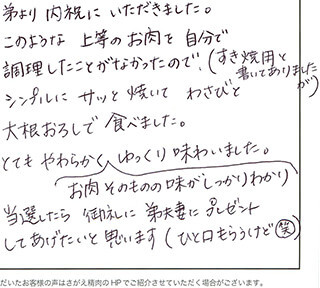 弟より 内祝に いただきました。
このような 上等の お肉を 自分で
調理したことがなかったので、(すき焼用と
書いてありましたが)
シンプルに サッと 焼いて わさびと
大根おろしで 食べました。
とても やわらかく、ゆっくり 味わいました。
お肉そのものの味がしっかりわかり
当選したら 御礼に 弟夫妻に プレゼント
してあげたいと思います (ひと口もらうけど 笑)
だいたお客様の声はさがえ精肉のHPでご紹介させていただく場合がございます。